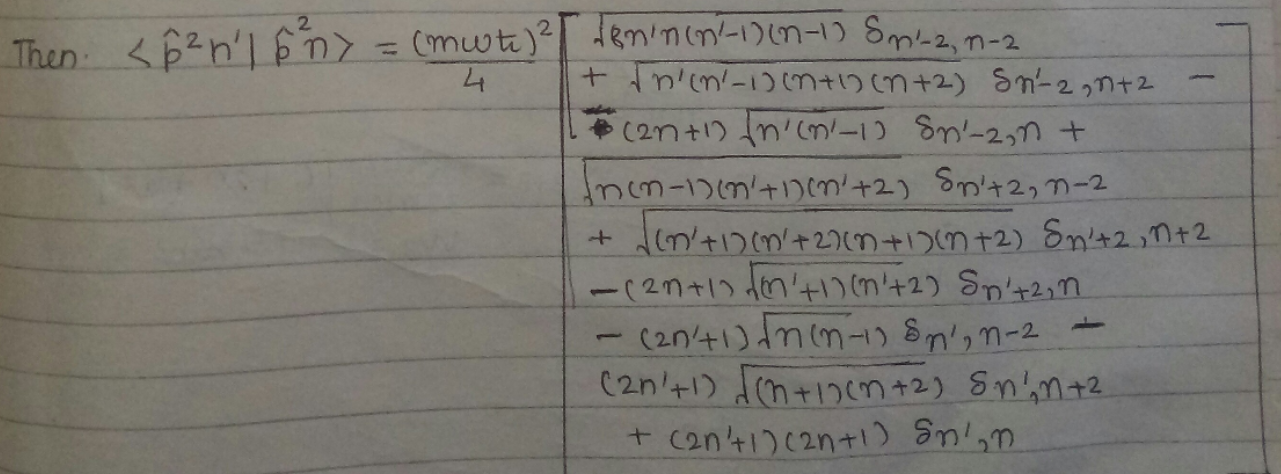 Then. <p̂²n'|p̂²n> = (mωħ)²/4 [ √(n'n(n'-1)(n-1)) δn'-2, n-2
+ √(n'(n'-1)(n+1)(n+2)) δn'-2, n+2 -
(2n+1) √(n'(n'-1)) δn'-2, n +
√(n(n-1)(n'+1)(n'+2)) δn'+2, n-2
+ √((n'+1)(n'+2)(n+1)(n+2)) δn'+2, n+2
- (2n+1) √((n'+1)(n'+2)) δn'+2, n
- (2n'+1) √(n(n-1)) δn', n-2 -
(2n'+1) √((n+1)(n+2)) δn', n+2
+ (2n'+1)(2n+1) δn', n